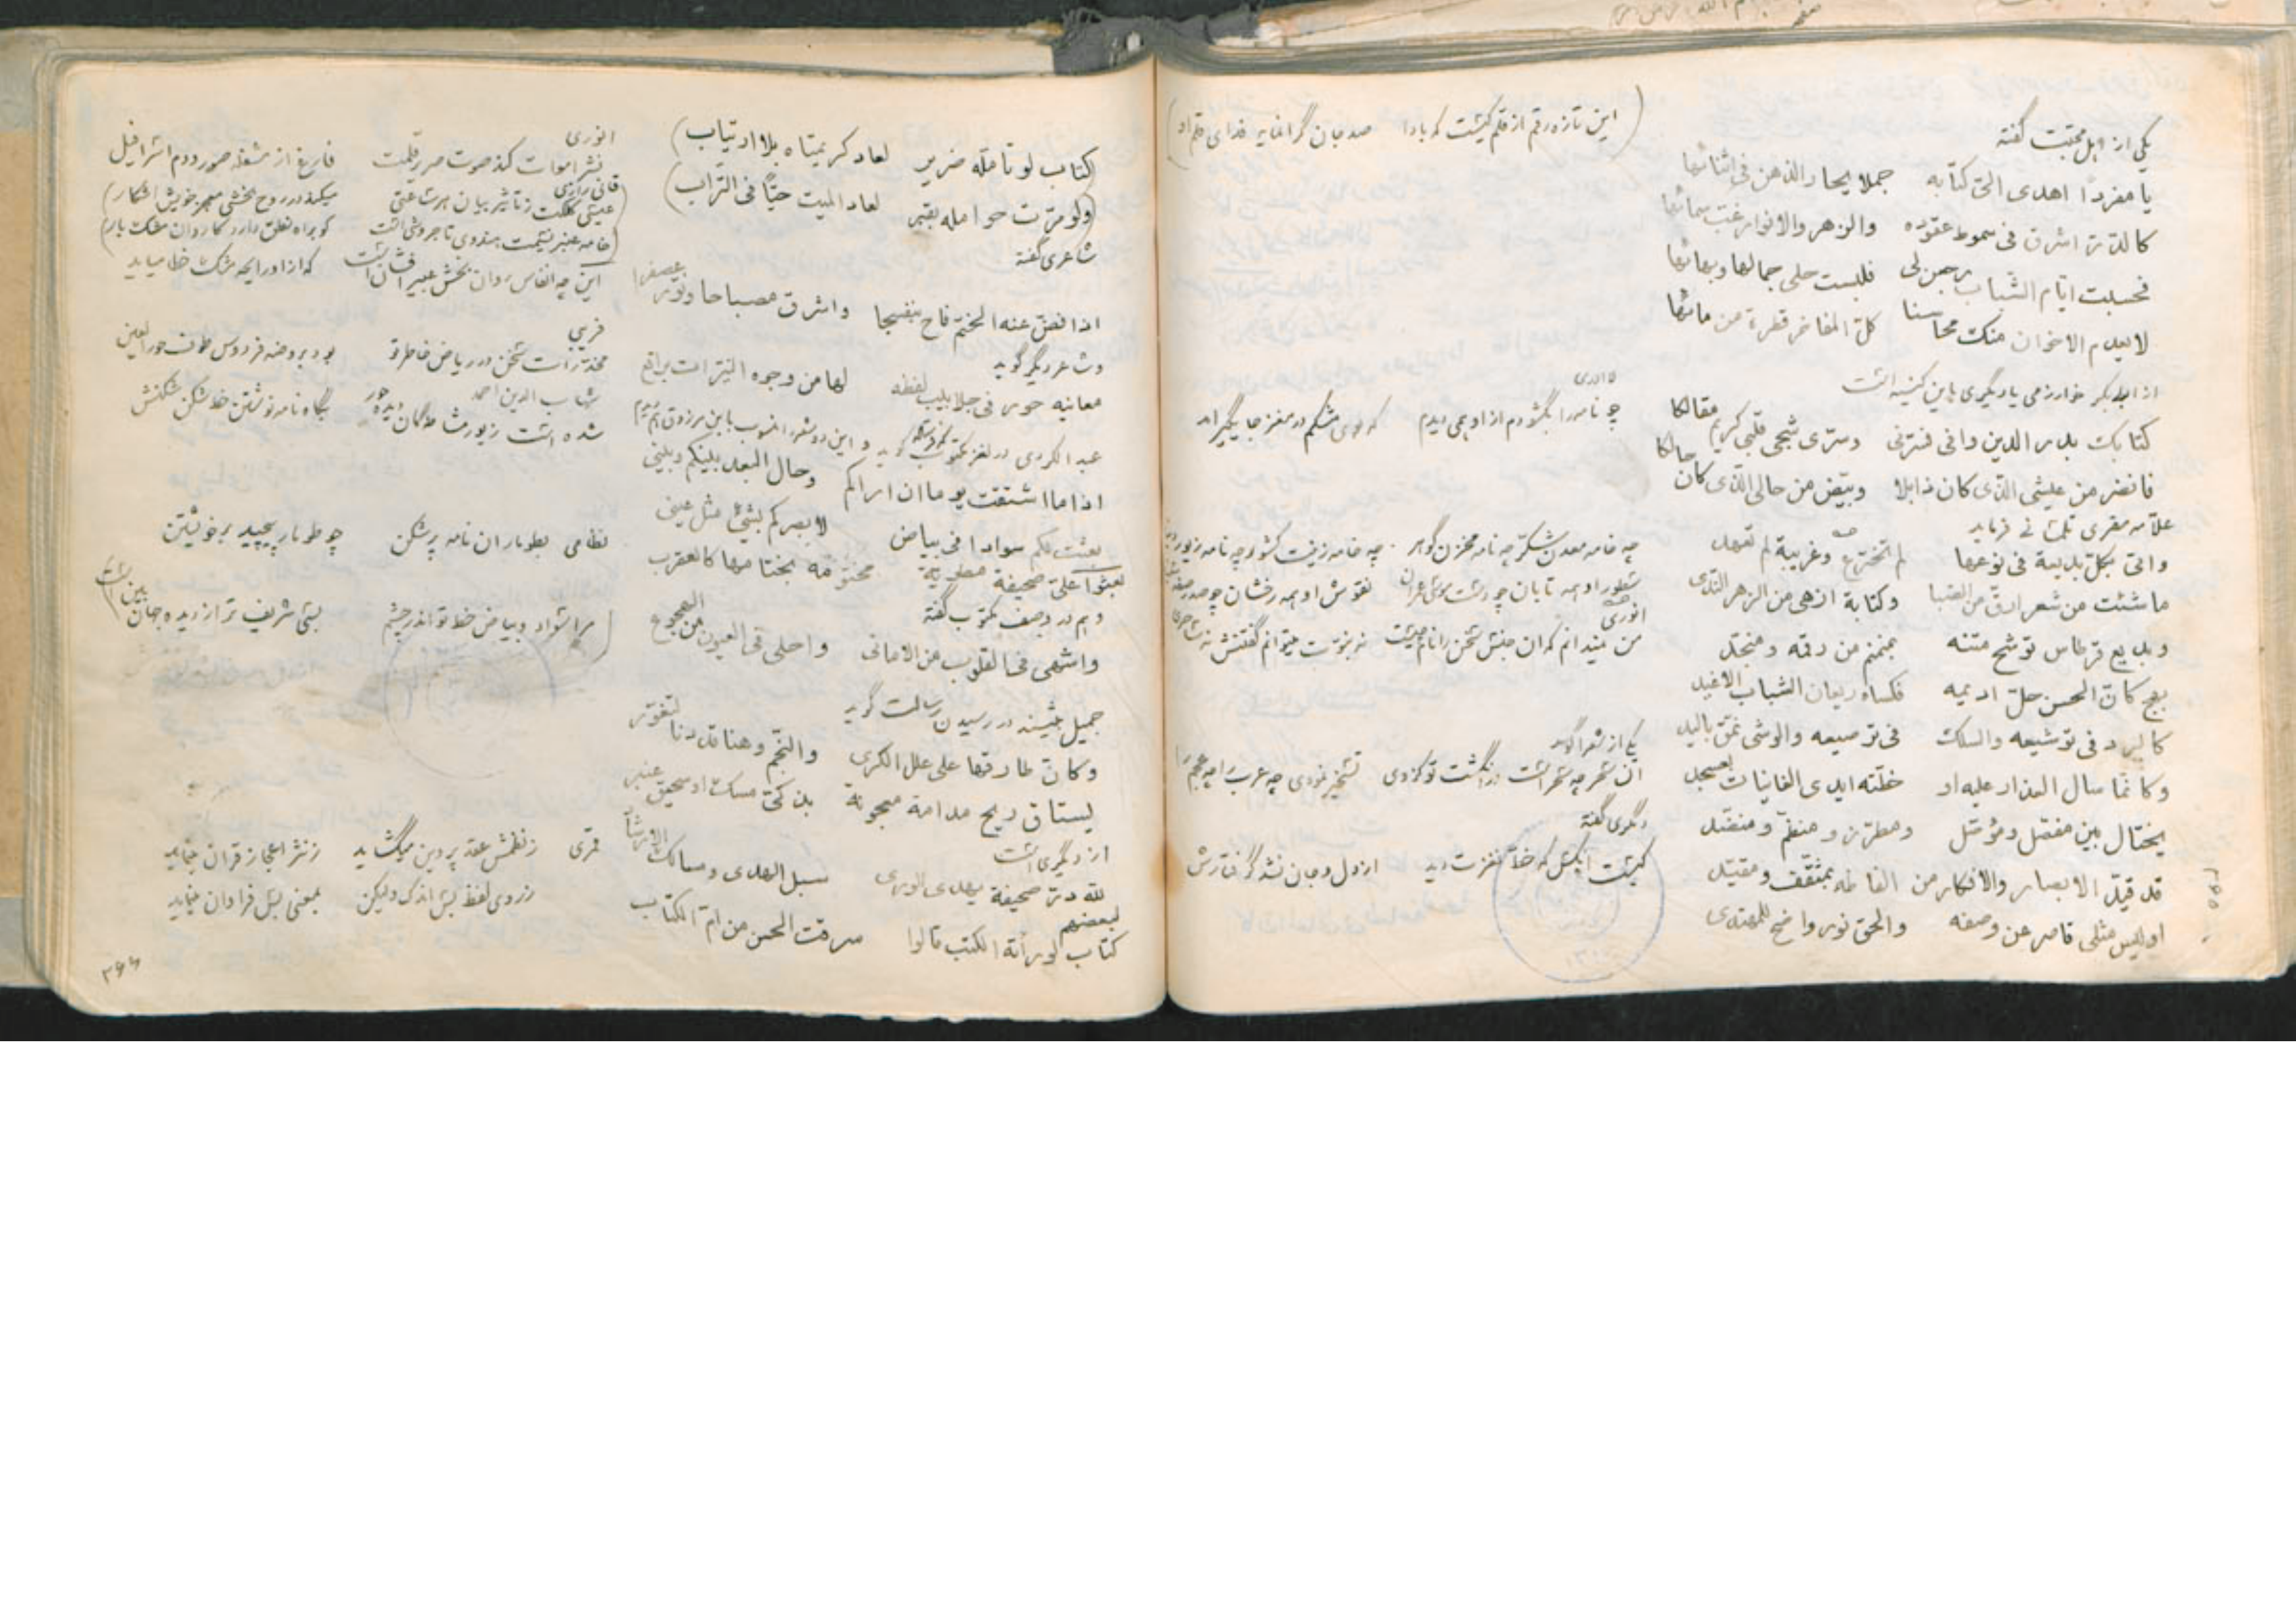 یکی از اهل محبت گفته
یا مفردًا اهدی الیّ کتابه جملا یحار الذهن فی اثنائها
کالدّر اشرق فی سموط عقوده والزهر والانوار غبّ سمائها
فحسبت ایّام الشباب رجعن لی فلبست حلی جمالها وبهائها
لا یعدم الاخوان منک محاسنا کلّ المفاخر قطرة من مائها
از ابوبکر خوارزمی یا دیگری باین کنیه است
کتابک بدر الدین وافی فسرّنی وسرّی شجی قلبی کریم مقالکا
فانضر من عیشی الذی کان ذابلا وبیّض من حالی الذی کان حالکا
علامه مقری تلمسانی فرماید
وافی بکلّ بدیعة فی نوعها لم تخترع وغریبة لم تعهد
ما شئت من شعر ارقّ من الصّبا وکتابة ازهی من الزهر الندی
وبدیع قرطاس توشح متنه بمنمنم من رقمه ومنجّد
بهج کانّ الحسن حلّ ادیمه فکساه ریعان الشباب الاغید
کالبرد فی توشیعه والسلک فی ترصیعه والوشی نمّق بالید
وکانما سال العذار علیه او خطّته ایدی الغانیات بعسجد
یختال بین مفصّل وموصّل ومطرّز ومنظّم ومنضّد
قد قیّد الابصار والافکار من الفاظه بمثقّف ومقیّد
اولیس مثلی قاصر عن وصفه والحق نور واضح للمهتدی
۳۶۵
(این تازه رقم از قلم کیست که بادا صد جان گرانمایه فدای قلم او)
لاادری
چو نامه را بگشودم از او همی دیدم که بوی مشکم در مغز جایگیر آمد
چه خامه معدن شکّر چه نامه مخزن گوهر چه خامه زینت کشور چه نامه زیور
سطور او همه تابان چو دست موسی عمران نقوش او همه رخشان چو
انوری
من نمیدانم که ان جنس سخن را نام چیست نه نبوّت میتوانم گفتنش نه ساحری
یکی از شعرا گوید
ان شعر چه شعر است در انگشت تو کزوی تسخیر نمودی چه عرب را چه عجم را
دیگری گفته
کیست انکس که خطّ نغزت دید از دل و جان نشد گرفتارش
(کتاب لو تأمّله ضریر لعاد کریمتاه بلا ارتیاب)
(ولو مرّت حوامله بقبر لعاد المیت حیًّا فی التراب)
شاعری گفته
اذا فضّ عنه الختم فاح بنفسجا واشرق مصباحا ونوّر عصفرا
و شاعر دیگر گوید
معانیه حور فی جلابیب لفظه لها من وجوه النیّرات براقع
عبد الکردی در لغز مکتوب گوید و این دو شعر را منسوب بابن مرزوق هم دیدم
اذا ما اشتقت یوما ان اراکم وحال البعد بینکم وبینی
بعثت لکم سوادا فی بیاض لابصرکم بشیء مثل عینی
بعثوا علیّ صحیفة مطویة مختومة بختامها کالعقرب
و هم در وصف مکتوب گفته
واشهی فی القلوب من الامانی واحلی فی العیون من الهجوع
جمیل بثینه در رسیدن رسالت گوید
وکانّ طارقها علی علل الکری والنجم وهنا قد دنا لتغوّر
یستاق ریح مدامة معجونة بذکیّ مسک او سحیق عنبر
از دیگری است
للّه درّ صحیفة یهدی الوری سبل الهدی ومسالک الارشاد
لبعضهم
کتاب لو رأته الکتب قالوا سرقت الحسن من امّ الکتاب
انوری
نشر اموات کند صوت صریر قلمت فارغ از مشغله صور و دم اسرافیل
قاآنی رازی
(عیسی کلکت ز تأثیر بیان هر ساعتی میکند در روح بخشی معجز خویش اشکار)
(خامه عنبر نسیمت هندوی تاجروش است کو براه نطق دارد کاروان مشک بار)
این چه انفاس روان بخش عبیر افشانست که از او رایحه مشک خطا میاید
فریبی
مخدّرات سخن در ریاض خاطر تو بود بروضه فردوس طوف حور العین
شهاب الدین احمد
شده است زیور مشاطگان دیده حور بگاه نامه نوشتن خط شکن شکنش
نظامی بطومار ان نامه پرشکن چو طومار پیچید بر خویشتن
(مرا سواد و بیاض خط تو اندر چشم بسی شریف تر از دیده جهان بین است)
قمری ز نظمش عقد پروین میگشاید ز نثر اعجاز قران مینماید
ز روی لفظ بس اندک ولیکن بمعنی بس فراوان مینماید
۳۶۶